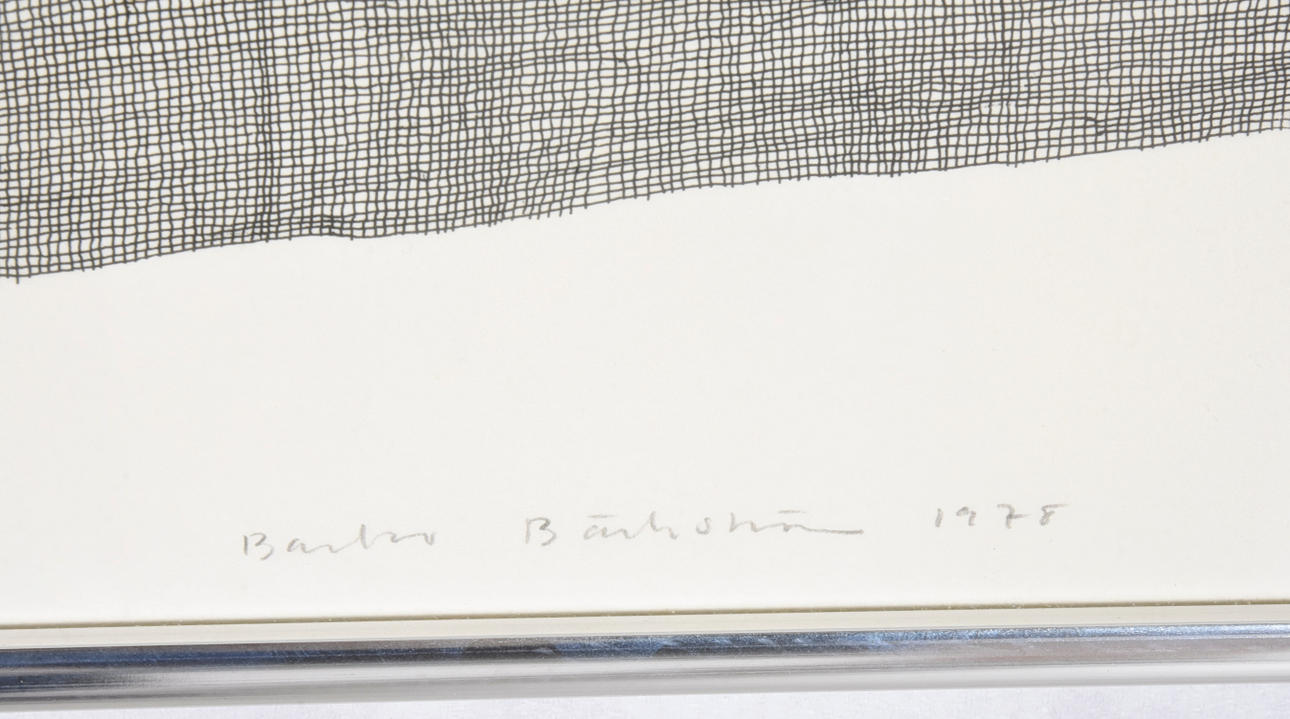 Barbro Bäckström 1978